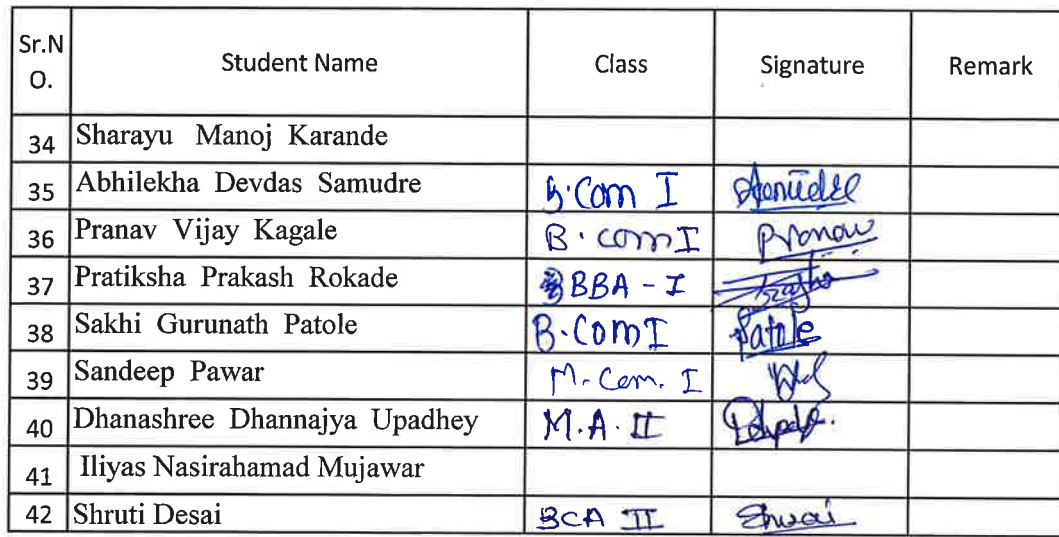 Sr.N O. Student Name Class Signature Remark
34 Sharayu Manoj Karande
35 Abhilekha Devdas Samudre B.Com I
36 Pranav Vijay Kagale B.com I Pranav
37 Pratiksha Prakash Rokade BBA - I
38 Sakhi Gurunath Patole B.Com I Patole
39 Sandeep Pawar M.Com. I
40 Dhanashree Dhannajya Upadhey M.A. II
41 Iliyas Nasirahamad Mujawar
42 Shruti Desai BCA II